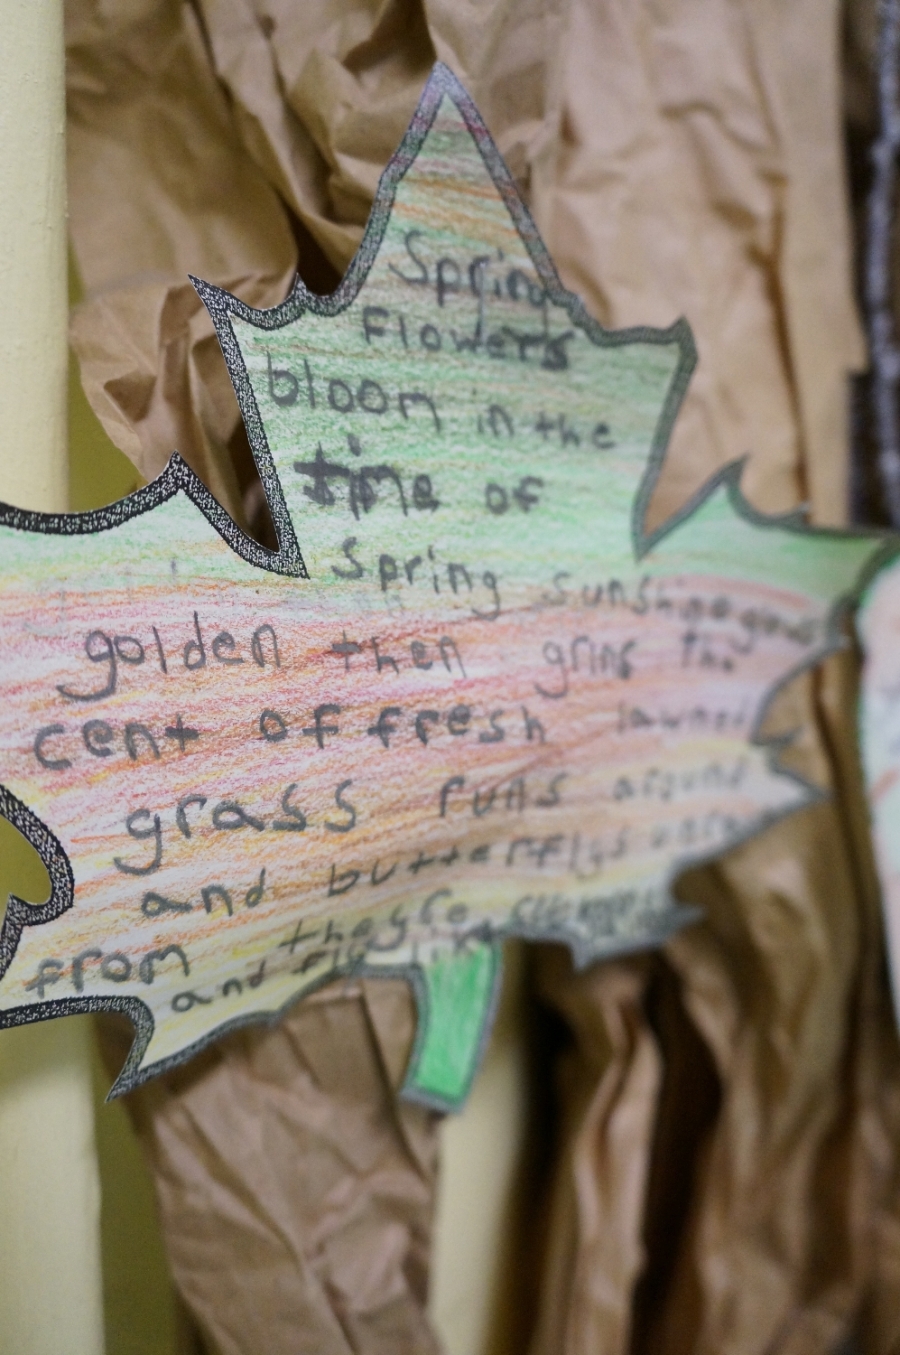 Spring
Flowers
bloom in the
time of
Spring sunshine goes
golden then the
cent of fresh
grass runs around
and butterflys
from they're
and fly like